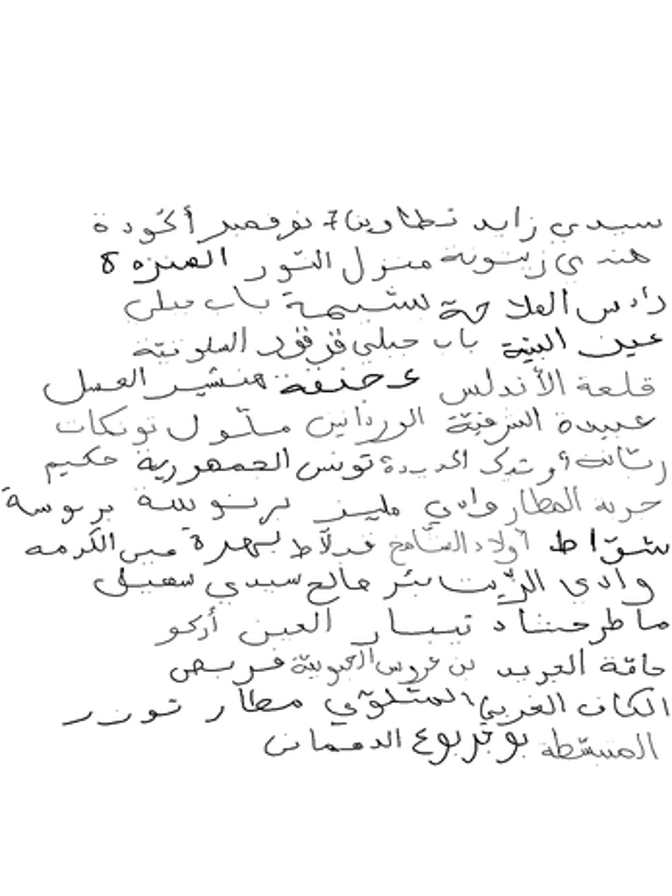 سيدي زايد تطاوين 7 نوفمبر أكودة
هندي زيتونة منزل النور المنزه 8
رادس الملاحة ستيمة باب جبلي
عين البنية باب جبلي قرقور السلوقية
قلعة الأندلس حنفة هنشير العسل
عبيدة الشرقية الوردانين ملول نويكات
رتانة أوتيك الجديدة تونس الجمهورية حكيم
حربه المطار وادي مليز برنوسة
شواط أولاد الشامخ بهرة عين الكرمه
وادي الزيت بئر صالح سيدي سهيل
ماطر حشاد تيبار العين أركو
حامة الجريد بن عروس الجنوبية قربص
الكاف الغربي المتلوي مطار توزر
المبسطة بوجربوع الدهماني